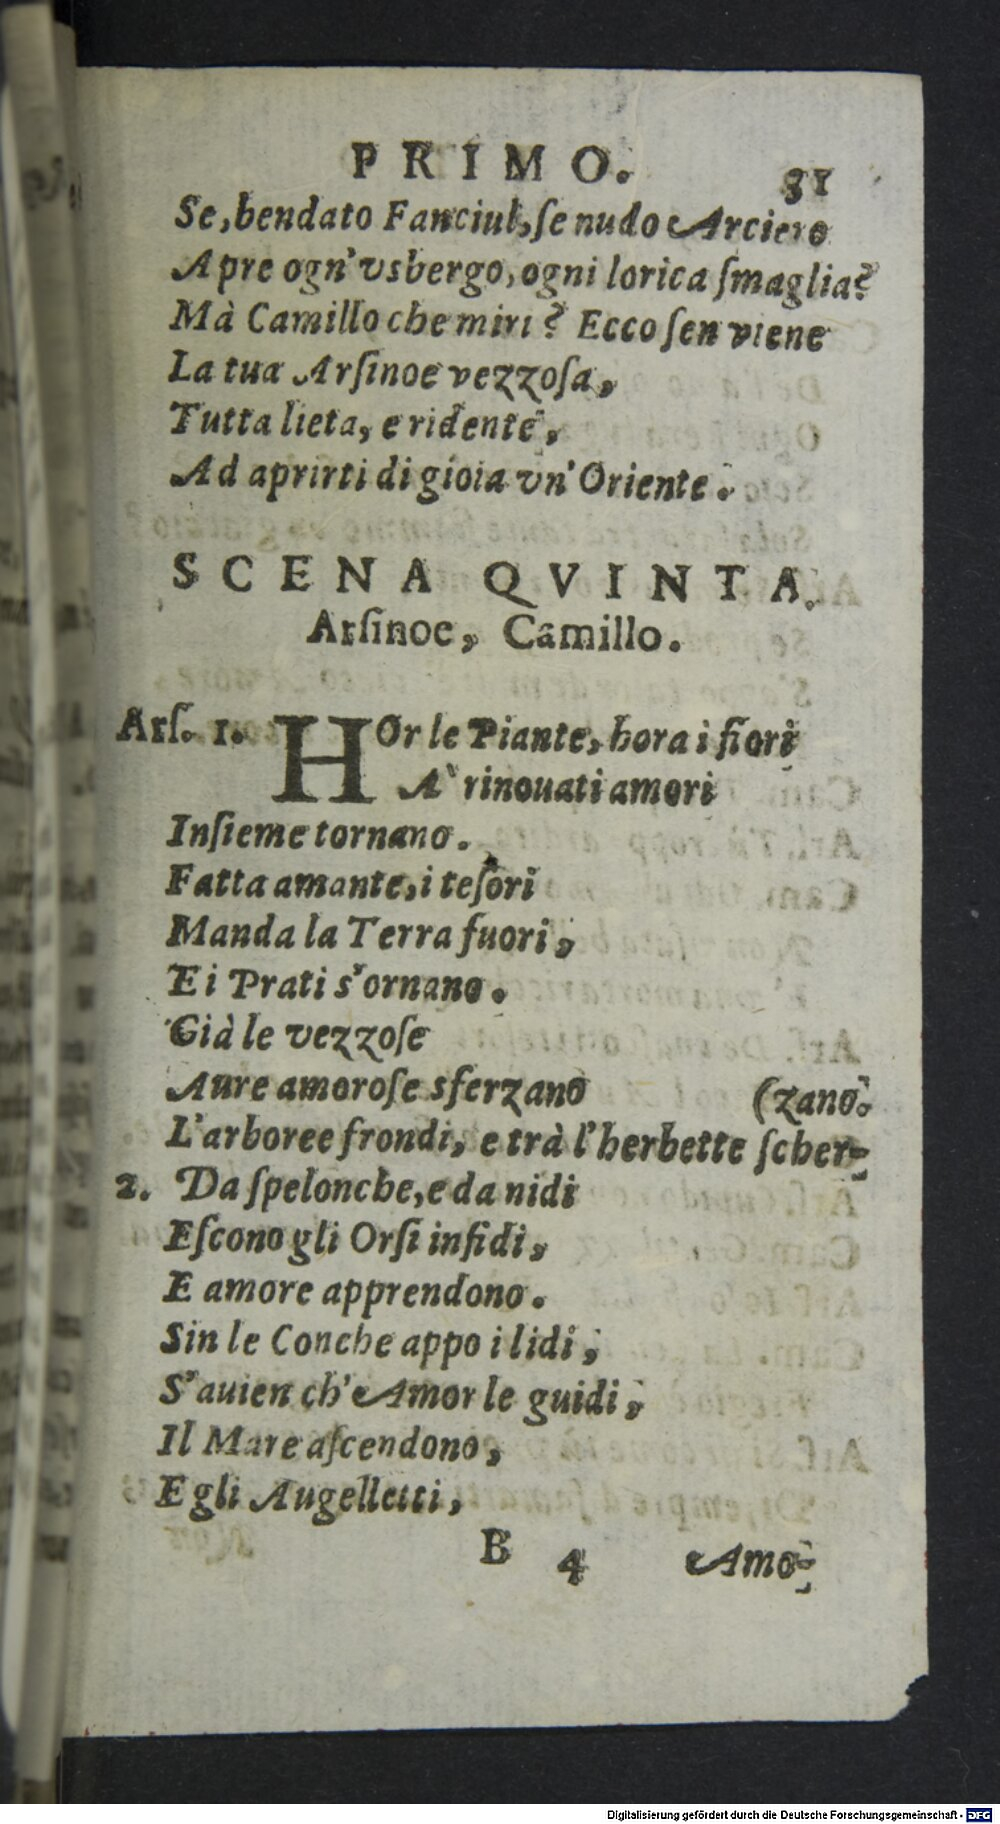 PRIMO. 31
Se, bendato Fanciul, ſe nudo Arciero
Apre ogn' vsbergo, ogni lorica ſmaglia?
Mà Camillo che miri? Ecco ſen viene
La tua Arſinoe vezzoſa,
Tutta lieta, e ridente,
Ad aprirti di gioia vn' Oriente.
SCENA QVINTA.
Arſinoe, Camillo.
Arſ. 1. HOr le Piante, hora i fiori
A' rinouati amori
Inſieme tornano.
Fatta amante, i teſori
Manda la Terra fuori,
E i Prati s'ornano.
Già le vezzoſe
Aure amoroſe sferzano (zano.
L'arboree frondi, e trà l'herbette ſcher-
2. Da ſpelonche, e da nidi
Eſcono gli Orſi infidi,
E amore apprendono.
Sin le Conche appo i lidi,
S'auien ch'Amor le guidi,
Il Mare aſcendono,
E gli Augelletti,
B 4 Amo-
Digitalisierung gefördert durch die Deutsche Forschungsgemeinschaft - DFG